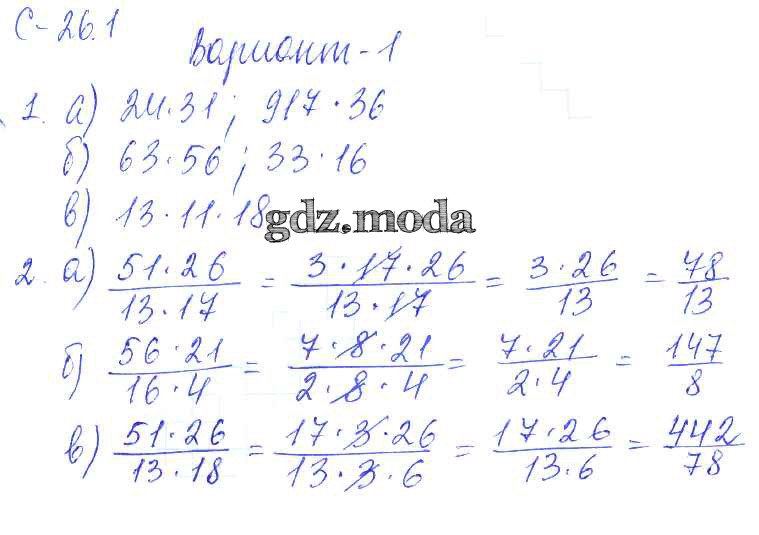 С-26.1
Вариант-1
1. а) 24·31; 917·36
б) 63·56; 33·16
в) 13·11·18
gdz.moda
2. а) 51·26/13·17 = 3·17·26/13·17 = 3·26/13 = 78/13
б) 56·21/16·4 = 7·8·21/2·8·4 = 7·21/2·4 = 147/8
в) 51·26/13·18 = 17·3·26/13·3·6 = 17·26/13·6 = 442/78